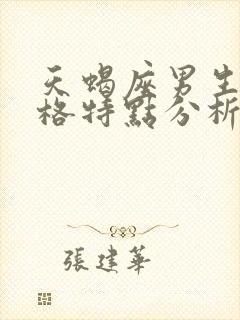 天蝎座男生
格特點分析
張建華